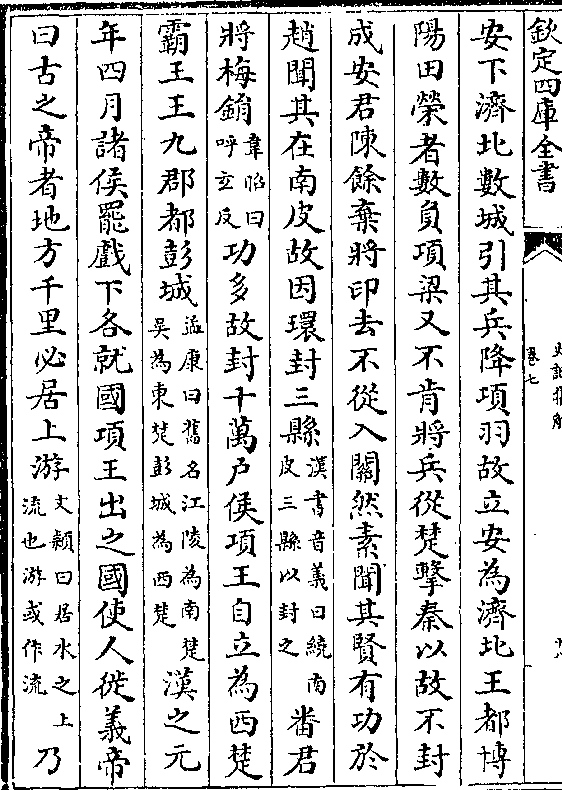 欽定四庫全書
史記集解
卷七
安下濟北數城引其兵降項羽故立安為濟北王都博
陽田榮者數負項梁又不肯將兵從楚擊秦以故不封
成安君陳餘棄將印去不從入關然素聞其賢有功於
趙聞其在南皮故因環封三縣漢書音義曰繞南皮三縣以封之番君
將梅鋗韋昭曰呼玄反功多故封十萬户侯項王自立為西楚
霸王王九郡都彭城孟康曰舊名江陵為南楚吳為東楚彭城為西楚漢之元
年四月諸侯罷戲下各就國項王出之國使人徙義帝
曰古之帝者地方千里必居上游文穎曰居水之上流也游或作流乃